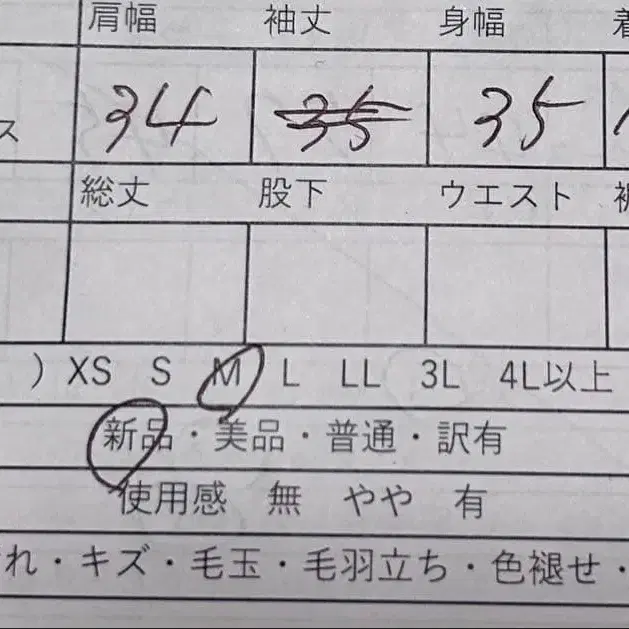 肩幅 袖丈 身幅 着
ス 34 35 35
総丈 股下 ウエスト
) XS S M L LL 3L 4L以上
新品・美品・普通・訳有
使用感 無 やや 有
れ・キズ・毛玉・毛羽立ち・色褪せ・